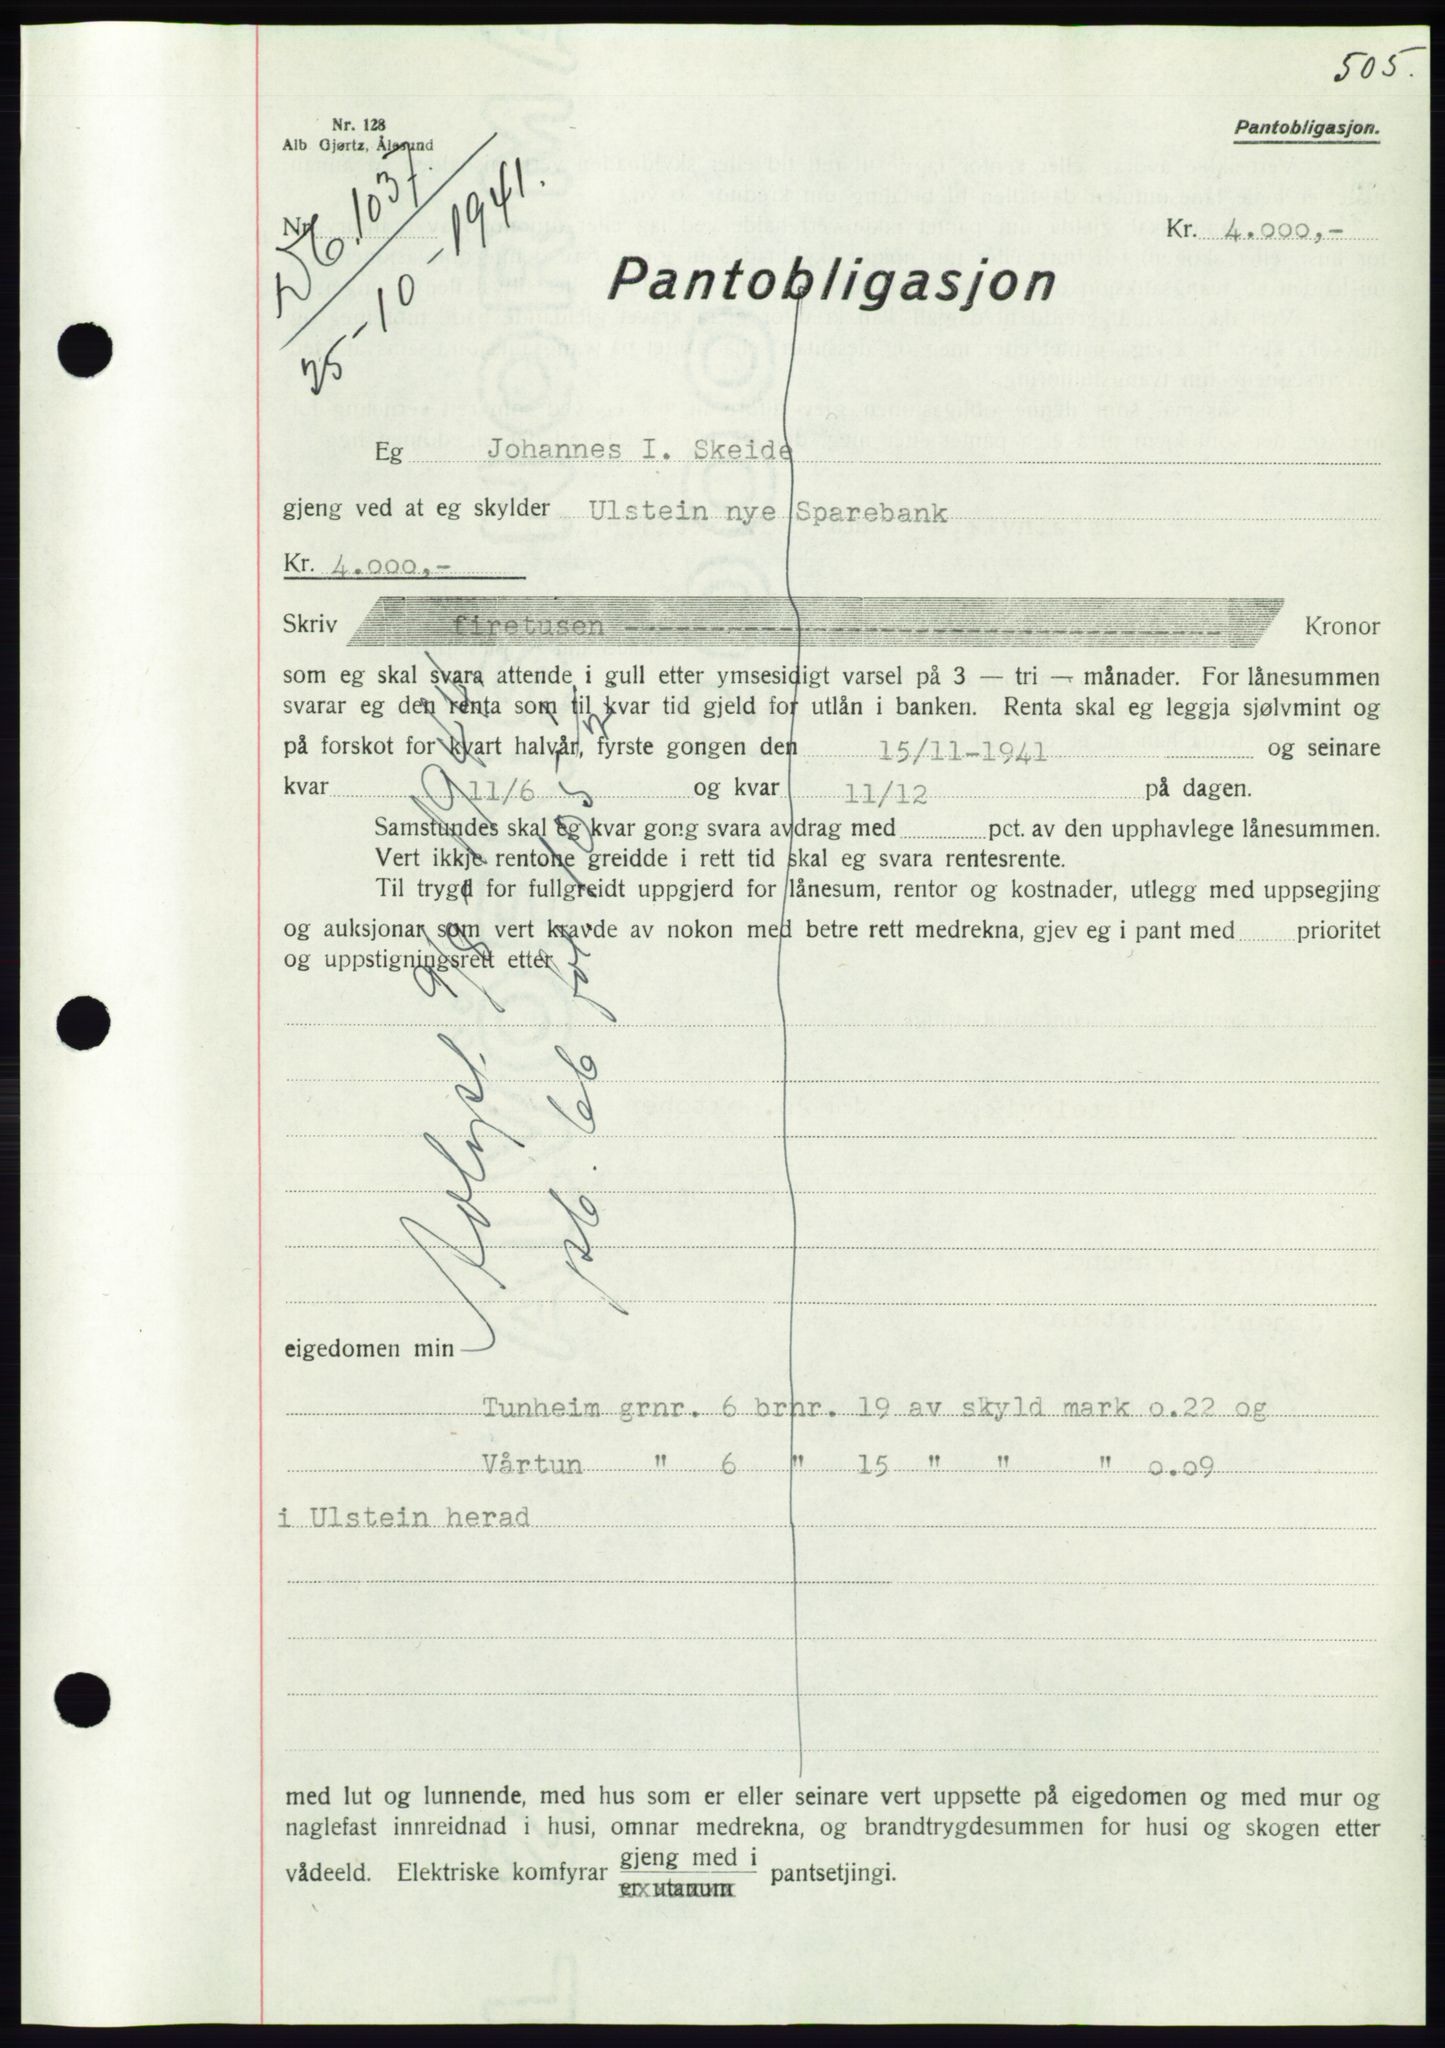 505.
Nr. 128
Alb Gjørtz, Ålesund
Pantobligasjon.
Nr.
Db. 1037.
25-10-1941.
Kr. 4.000,-
Pantobligasjon
Eg Johannes I. Skeide
gjeng ved at eg skylder Ulstein nye Sparebank
Kr. 4.000,-
Skriv firetusen ---------- Kronor
som eg skal svara attende i gull etter ymsesidigt varsel på 3 — tri — månader. For lånesummen
svarar eg den renta som til kvar tid gjeld for utlån i banken. Renta skal eg leggja sjølvmint og
på forskot for kvart halvår, fyrste gongen den 15/11-1941 og seinare
kvar 11/6 og kvar 11/12 på dagen.
Samstundes skal eg kvar gong svara avdrag med pct. av den upphavlege lånesummen.
Vert ikkje rentone greidde i rett tid skal eg svara rentesrente.
Til trygd for fullgreidt uppgjerd for lånesum, rentor og kostnader, utlegg med uppsegjing
og auksjonar som vert kravde av nokon med betre rett medrekna, gjev eg i pant med prioritet
og uppstigningsrett etter
Avlyst
pb. 66 fol
eigedomen min
Tunheim grnr. 6 brnr. 19 av skyld mark o.22 og
Vårtun " 6 " 15 " " " o.o9
i Ulstein herad
med lut og lunnende, med hus som er eller seinare vert uppsette på eigedomen og med mur og
naglefast innreidnad i husi, omnar medrekna, og brandtrygdesummen for husi og skogen etter
vådeeld. Elektriske komfyrar gjeng med i pantsetjingi.
er utanum